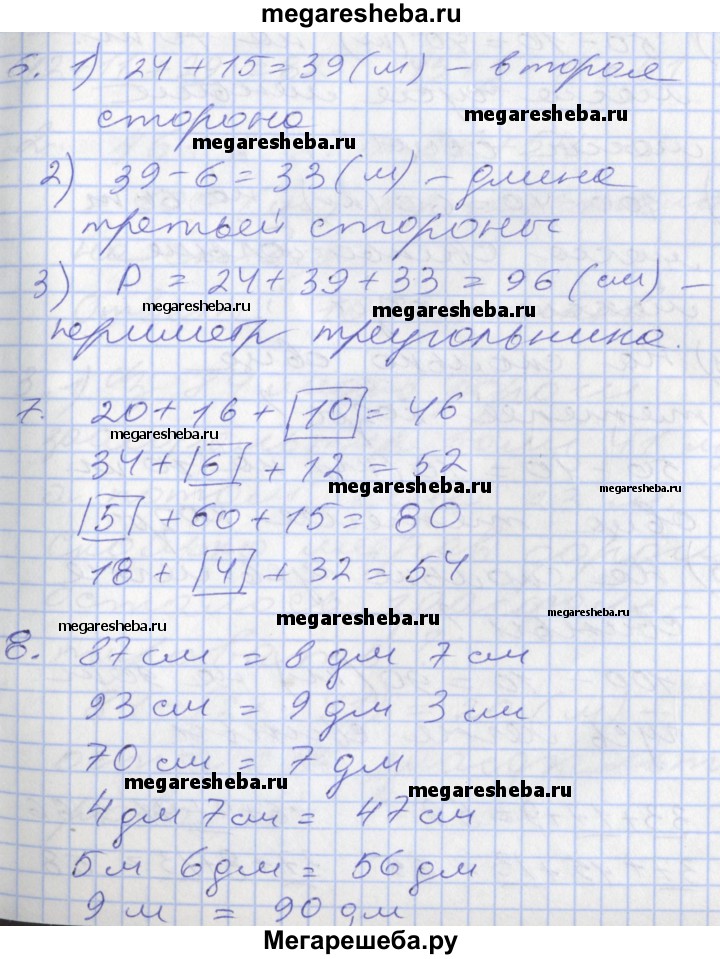 megaresheba.ru
6. 1) 24 + 15 = 39 (м) – вторая
megaresheba.ru
сторона
megaresheba.ru
2) 39 – 6 = 33 (м) – длина
третьей стороны
3) P = 24 + 39 + 33 = 96 (см) –
megaresheba.ru megaresheba.ru
периметр треугольника.
7. 20 + 16 + 10 = 46
megaresheba.ru
34 + 6 + 12 = 52
megaresheba.ru megaresheba.ru
5 + 60 + 15 = 80
18 + 4 + 32 = 54
megaresheba.ru megaresheba.ru megaresheba.ru
8. 87 см = 8 дм 7 см
93 см = 9 дм 3 см
70 см = 7 дм
megaresheba.ru megaresheba.ru
4 дм 7 см = 47 см
5 м 6 дм = 56 дм
9 м = 90 дм
Мегарешеба.ру